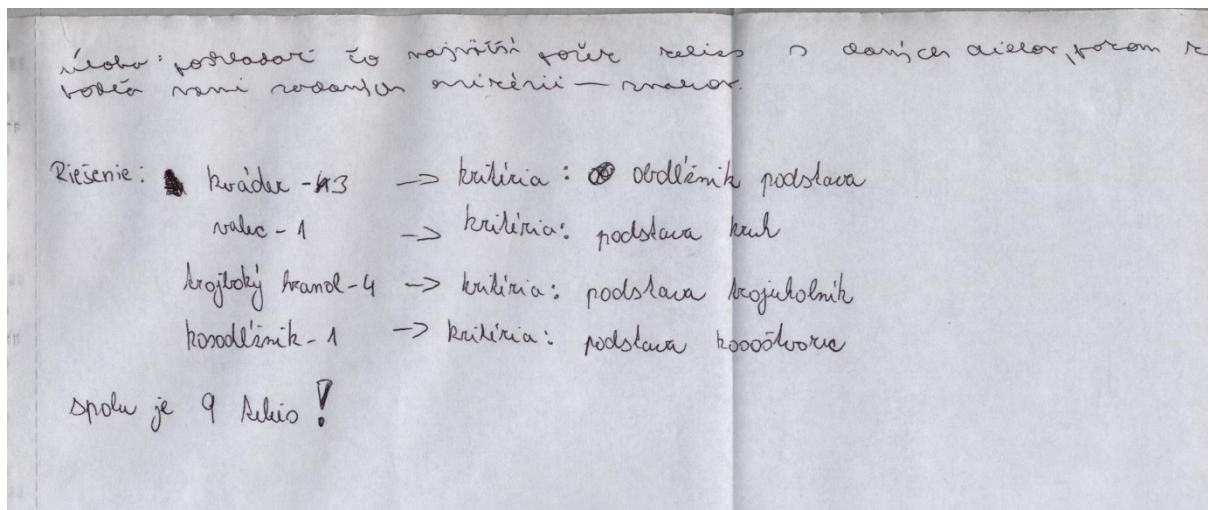 úloha: poskladať čo najväčší počet telies z daných dielov, potom
podľa vami zadaných kritérií – znakov.
Riešenie: kváder - 3 -> kritéria: obdĺžnik podstava
valec - 1 -> kritéria: podstava kruh
trojboký hranol - 4 -> kritéria: podstava trojuholník
kosodĺžnik - 1 -> kritéria: podstava kosoštvorec
spolu je 9 telies!